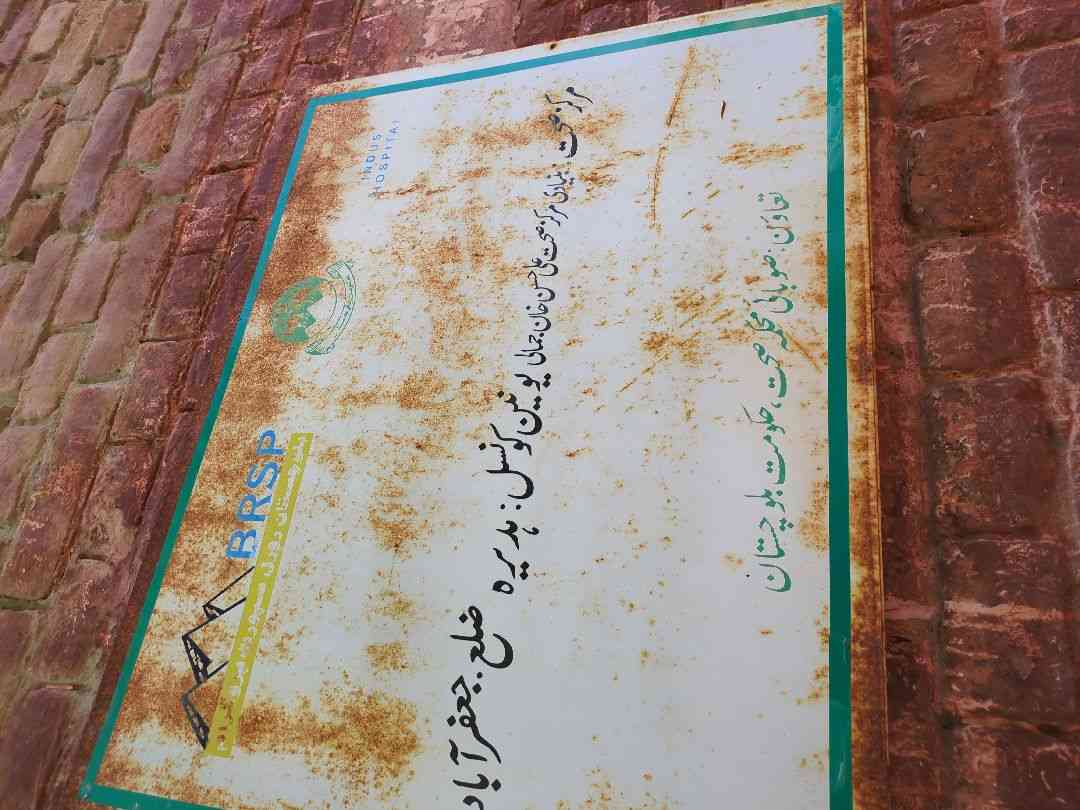 INDUS
HOSPITAL
BRSP
بلوچستان رورل سپورٹ پروگرام
مرکز صحت : بنیادی مرکز صحت علی حسن خان جمالی یونین کونسل : ہدیرہ ضلع . جعفر آباد
تعاون : صوبائی محکمہ صحت، حکومت بلوچستان